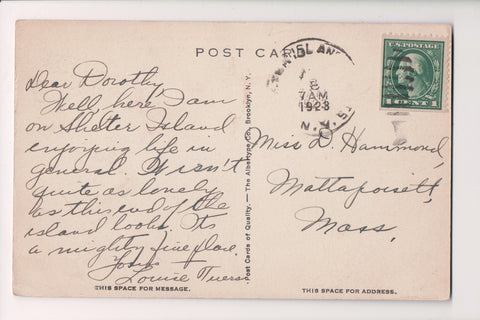 POST CARD
Dear Dorothy
Well here I am
on Shelter Island
enjoying life in
general. It isn't
quite as lonely
as this end of the
island looks. It's
a mighty fine place.
Yours
Louise
THIS SPACE FOR MESSAGE.
Post Cards of Quality. — The Albertype Co., Brooklyn, N.Y.
ISLAN
8
7AM
1923
N.Y.
U.S. POSTAGE
1 CENT 1
Miss D. Hammond,
Mattapoisett,
Mass.
THIS SPACE FOR ADDRESS.